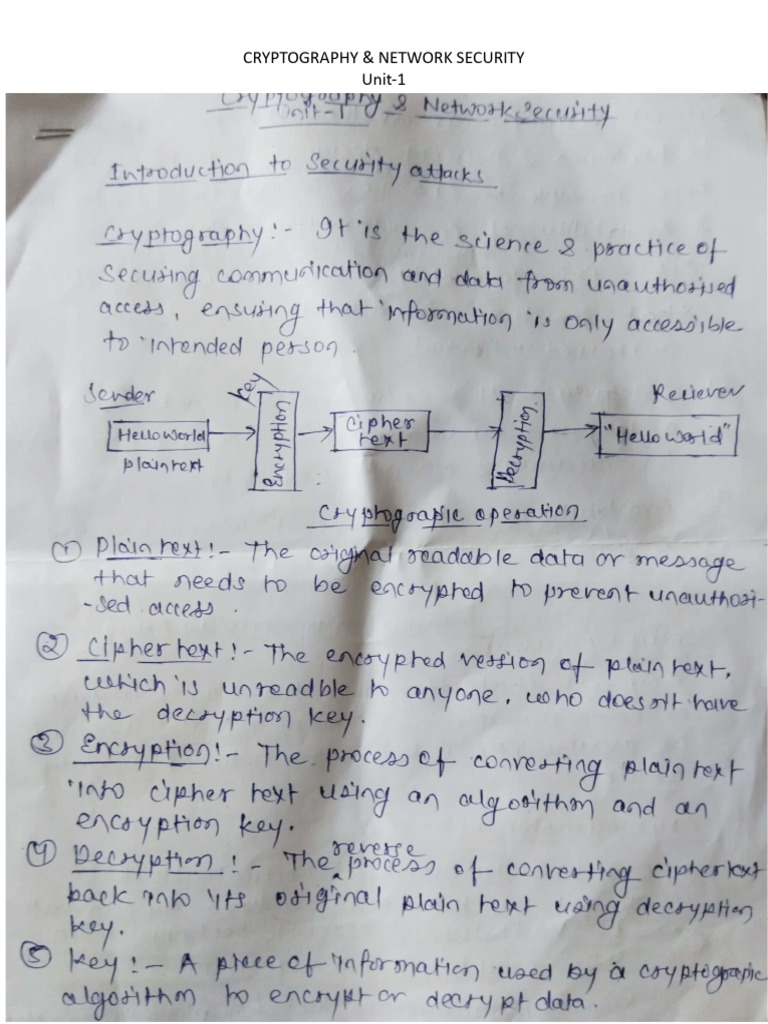 CRYPTOGRAPHY & NETWORK SECURITY
Unit-1
Cryptography & Network Security
Unit-I
Introduction to Security attacks
Cryptography:- It is the science & practice of
Securing communication and data from unauthorised
access, ensuring that information is only accessible
to intended person.
Sender key Reciever
Hello World Encryption Cipher text Decryption "Hello World"
plain text
Cryptograpic operation
① Plain text:- The original readable data or message
that needs to be encrypted to prevent unauthori-
-sed access.
② Cipher text:- The encrypted version of plain text,
which is unreadble to anyone, who doesn't have
the decryption key.
③ Encryption:- The process of converting plain text
into cipher text using an algorithm and an
encryption key.
④ Decryption:- The reverse process of converting cipher text
back into its original plain text using decryption
key.
⑤ key:- A piece of information used by a cryptograpic
algorithm to encrypt or decrypt data.